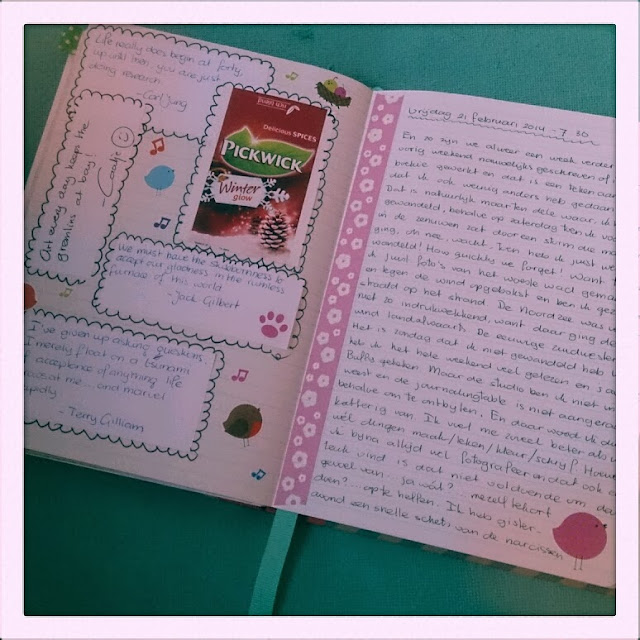 Life really does begin at forty,
up until then, you are just
doing research.
- Carl Jung
Art every day keeps the
gremlins at bay!
DELICIOUS SPICES
PICKWICK
Winter
glow
We must have the stubbornness to
accept our gladness in the ruthless
furnace of this world
- Jack Gilbert
I've given up asking questions.
I merely float on a tsunami
of acceptance of anything life
throws at me... and marvel
stupidly.
- Terry Gilliam
Vrijdag 21 februari 2014 - 7.30
En zo zijn we alweer een week verder
vorig weekend nauwelijks geschreven of
gewerkt en dat is een teken
dat ik ook weinig anders heb gedaan
Dat is natuurlijk maar ten dele waar.
gewandeld, behalve op zaterdag
in de zenuwen zat door een storm die
ging, oh nee, wacht. Toen heb ik juist
wandeld! How quickly we forget! Want
ik juist foto's van het woeste wad
en tegen de wind opgebokst en ben ik
op het strand. De Noordzee was
net zo indrukwekkend, want daar ging de
wind landafwaarts. De eeuwige
Het is zondag dat ik niet gewandeld heb
heb ik het hele weekend veel gelezen en
getekend. Maar de studio ben ik niet
weest en de journalingtable is niet
behalve om te ontbijten. En daar word ik
katterig van. Ik voel me zoveel beter als
wél dingen maak/teken/kleur/schrijf.
ik bijna altijd wel fotografeer en dat ook
leuk vind is dat niet voldoende om
gevoel van... ja wát? mezelf tekort
doen?... op te heffen. Ik heb
avond een snelle schets van de narcissen